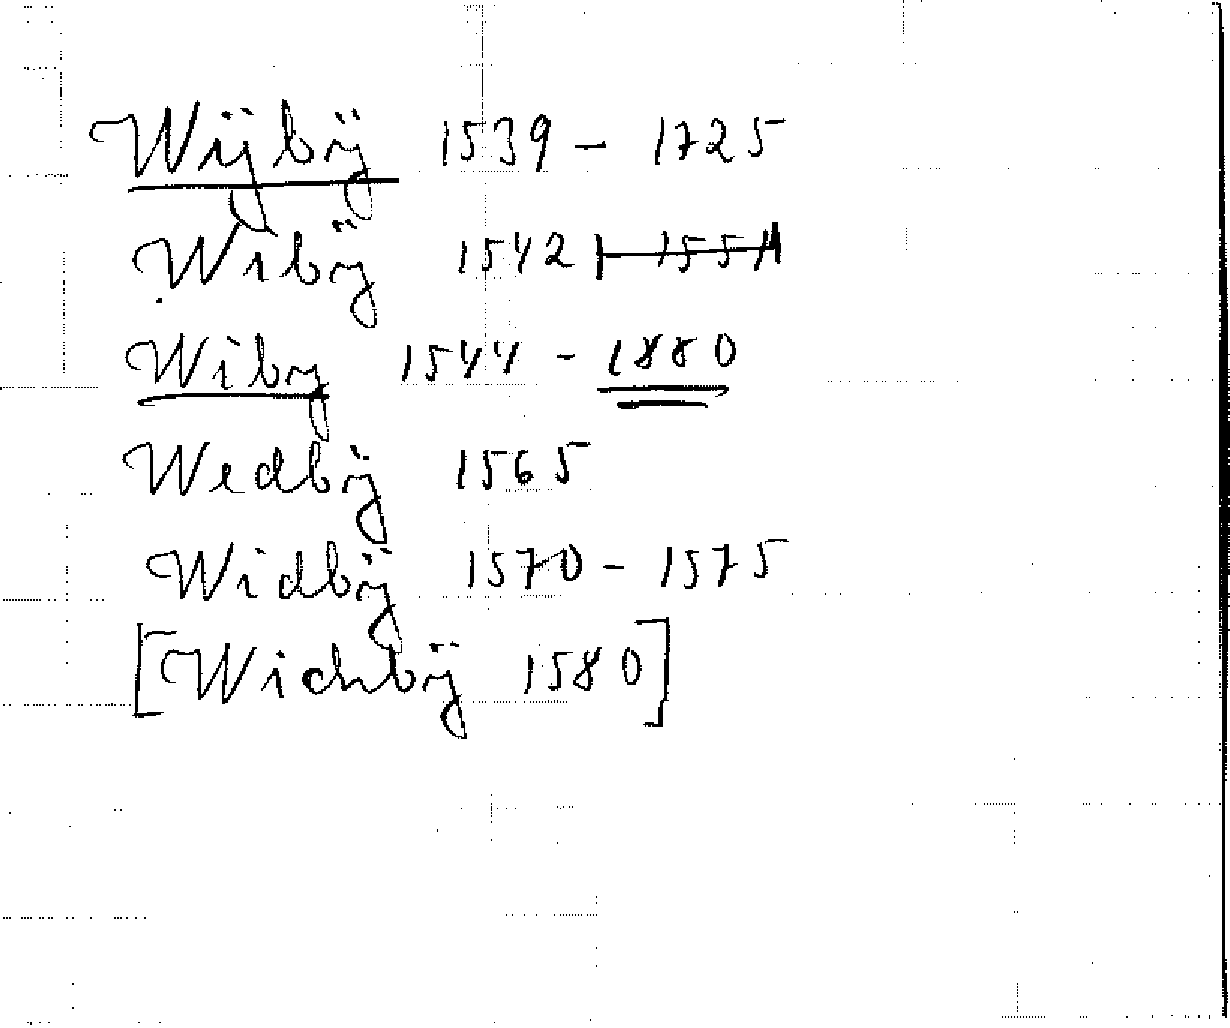 Wÿbÿ 1539 – 1725
Wibÿ 1542
Wiby 1544 - 1880
Wedbÿ 1565
Widbÿ 1570 - 1575
[Wichbÿ 1580]